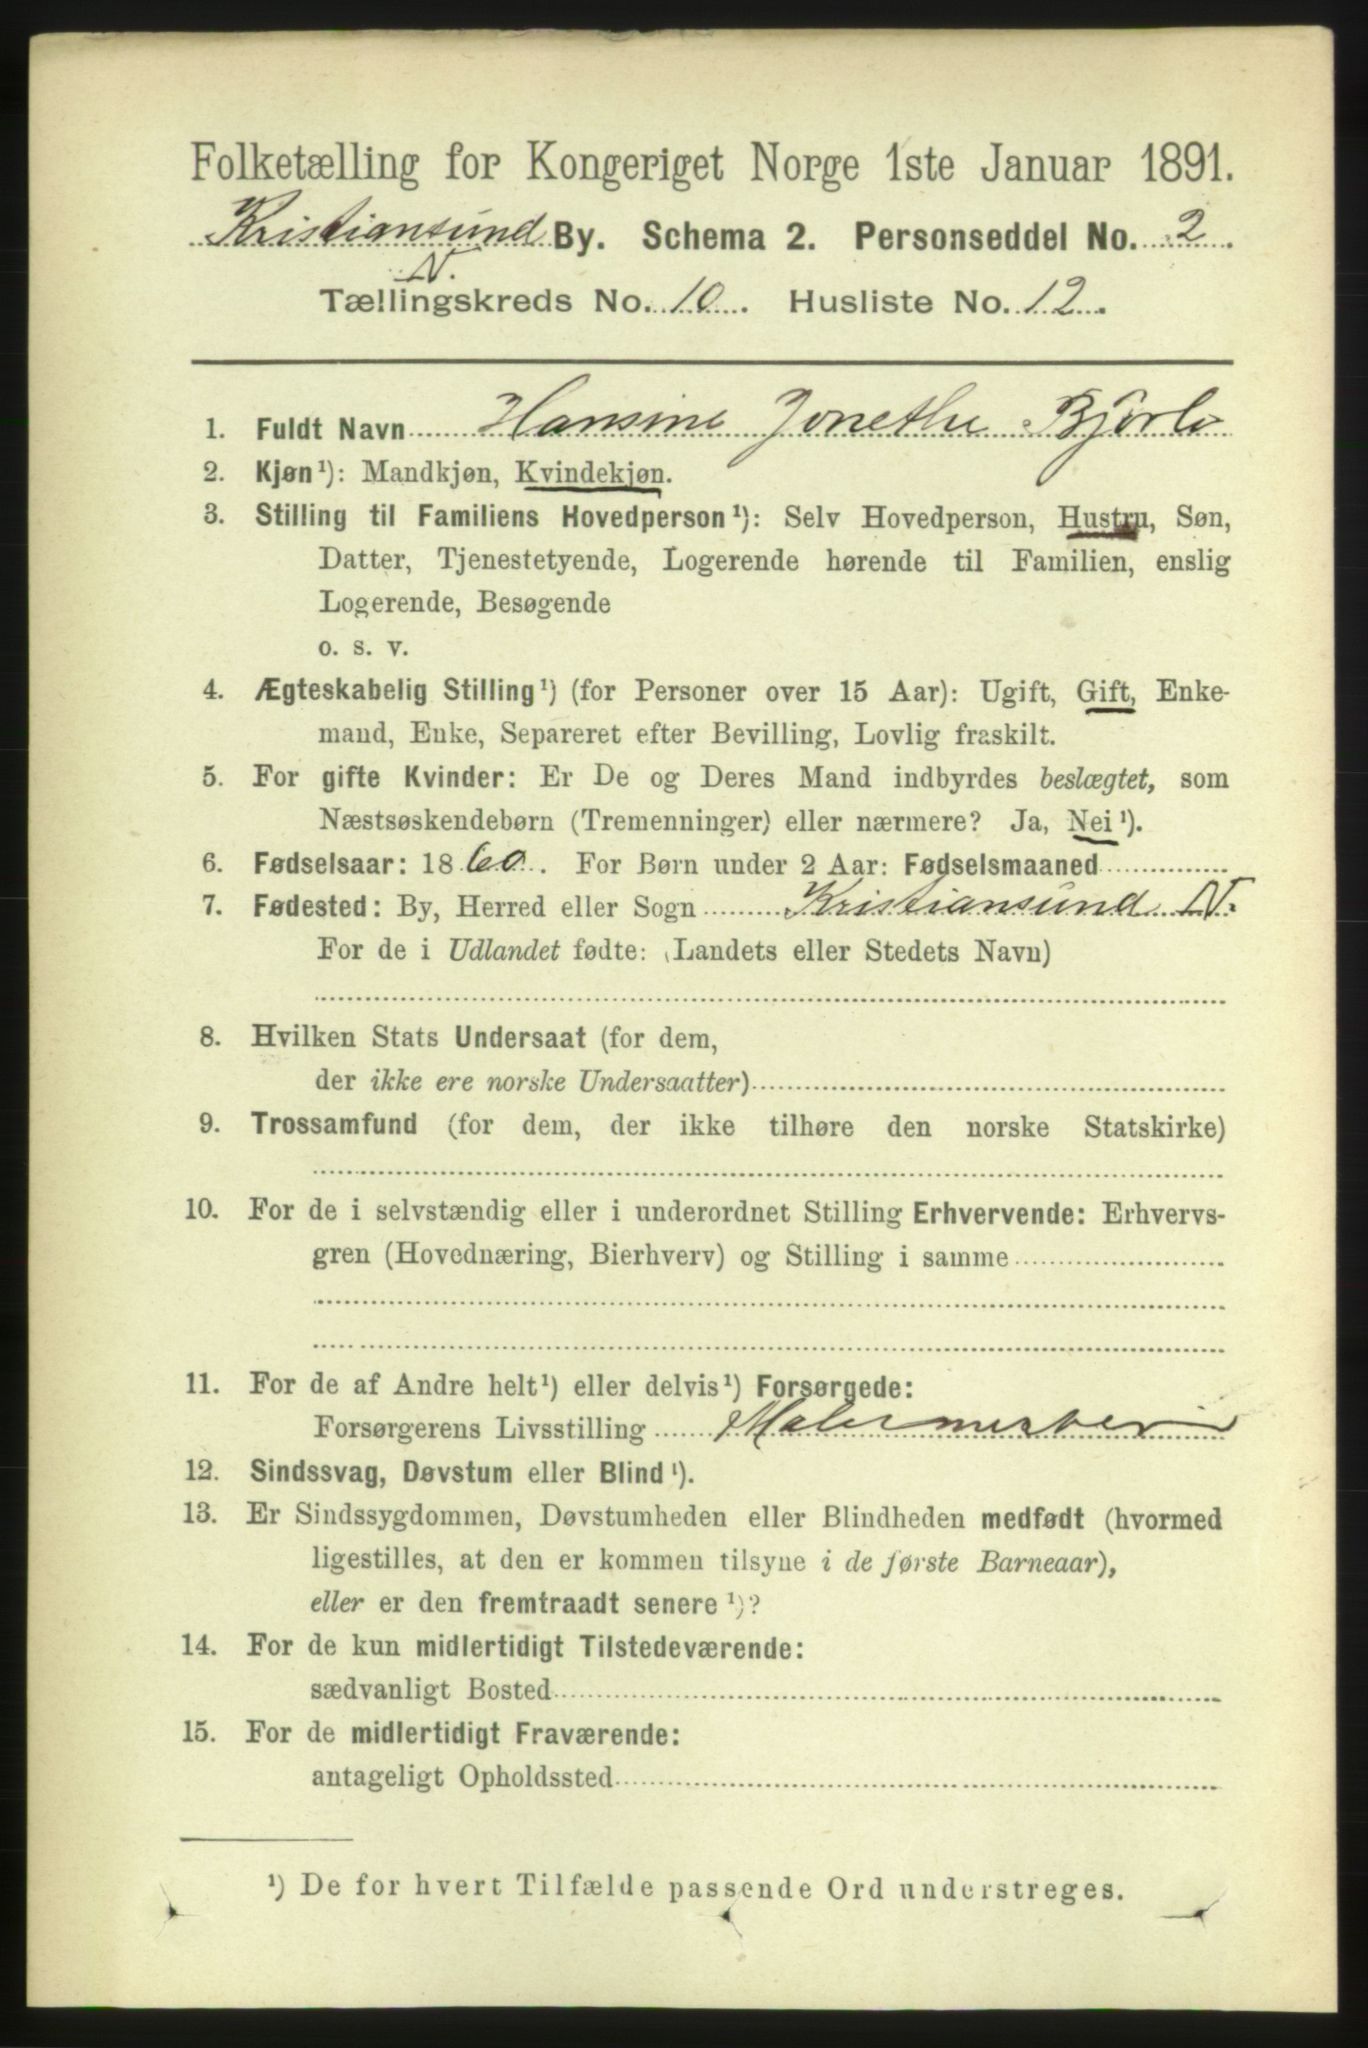 Folketælling for Kongeriget Norge 1ste Januar 1891.
Kristiansund By. Schema 2. Personseddel No. 2.
N.
Tællingskreds No. 10. Husliste No. 12.
1. Fuldt Navn Hansine Jonethe Bjørlo
2. Kjøn¹): Mandkjøn, Kvindekjøn.
3. Stilling til Familiens Hovedperson¹): Selv Hovedperson, Hustru, Søn,
Datter, Tjenestetyende, Logerende hørende til Familien, enslig
Logerende, Besøgende
o. s. v.
4. Ægteskabelig Stilling¹) (for Personer over 15 Aar): Ugift, Gift, Enke-
mand, Enke, Separeret efter Bevilling, Lovlig fraskilt.
5. For gifte Kvinder: Er De og Deres Mand indbyrdes beslægtet, som
Næstsøskendebørn (Tremenninger) eller nærmere? Ja, Nei¹).
6. Fødselsaar: 1860. For Børn under 2 Aar: Fødselsmaaned
7. Fødested: By, Herred eller Sogn Kristiansund N.
For de i Udlandet fødte: (Landets eller Stedets Navn)
8. Hvilken Stats Undersaat (for dem,
der ikke ere norske Undersaatter)
9. Trossamfund (for dem, der ikke tilhøre den norske Statskirke)
10. For de i selvstændig eller i underordnet Stilling Erhvervende: Erhvervs-
gren (Hovednæring, Bierhverv) og Stilling i samme
11. For de af Andre helt¹) eller delvis¹) Forsørgede:
Forsørgerens Livsstilling Malermester
12. Sindssvag, Døvstum eller Blind¹).
13. Er Sindssygdommen, Døvstumheden eller Blindheden medfødt (hvormed
ligestilles, at den er kommen tilsyne i de første Barneaar),
eller er den fremtraadt senere¹)?
14. For de kun midlertidigt Tilstedeværende:
sædvanligt Bosted
15. For de midlertidigt Fraværende:
antageligt Opholdssted
¹) De for hvert Tilfælde passende Ord understreges.